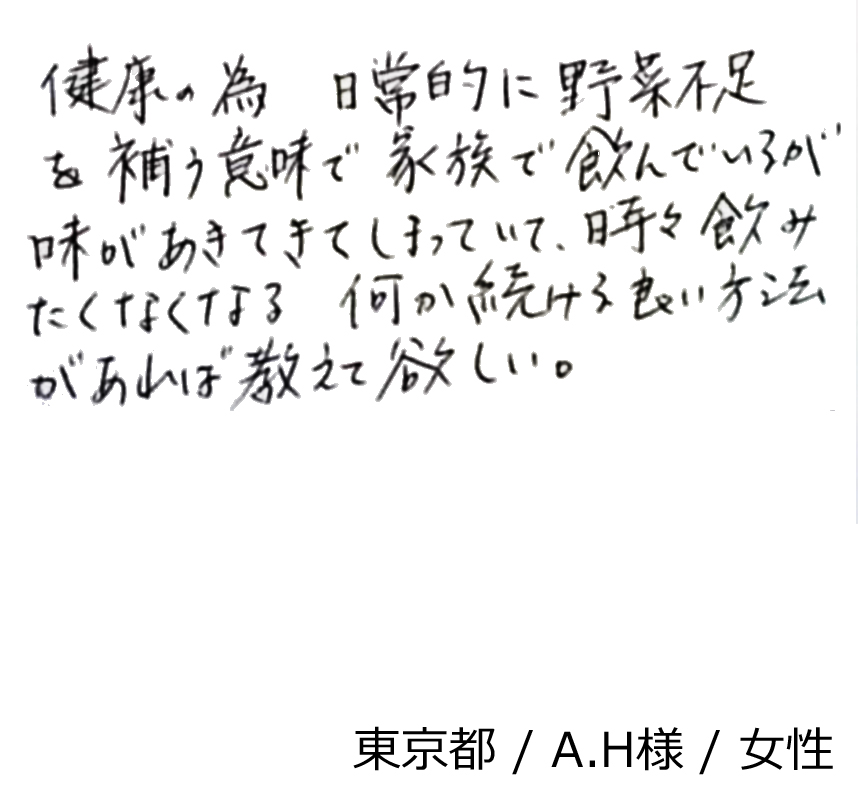 健康の為 日常的に野菜不足
を補う意味で家族で飲んでいるが
味があきてきてしまっていて、時々飲み
たくなくなる 何か続ける良い方法
があれば教えて欲しい。
東京都 / A.H様 / 女性